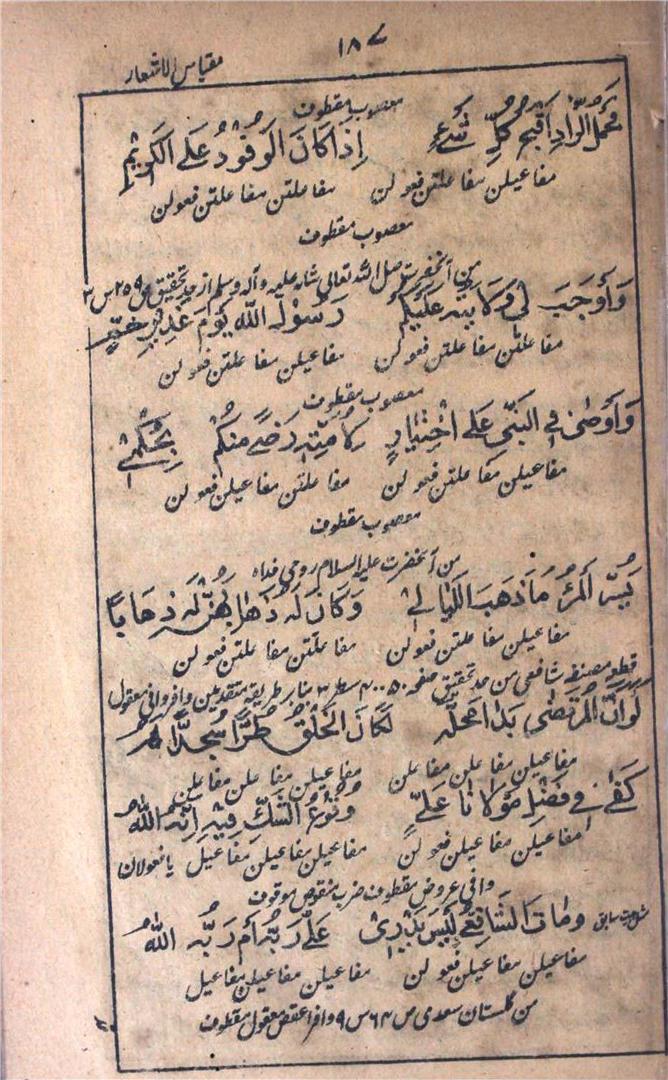 ۱۸۷
مقیاس الاشعار
معصوب مقطوف
محمل الزاد اقبح کل شیء اِذَا کَانَ الوَفُوْدُ عَلَے الکَرِیْمِ
مفاعیلن مفاعلتن فعولن مفاعلتن مفاعلتن فعولن
معصوب مقطوف
من آنحضرت صلی اللہ تعالی شانہ علیہ وآلہ وسلم از جد تحقیق ص ۲۵۹ س ۳
وَاَوْجَبَ لِیْ وَلَایَتَہٗ عَلَیْکُمْ رَسُوْلُ اللّٰهِ یَوْمَ غَدِیْرِ خُمٍّ
مفاعلتن مفاعلتن فعولن مفاعیلن مفاعلتن فعولن
معصوب مقطوف
وَاَوْصٰنِیْ النَّبِیْ عَلَے اخْتِیَارٍ لِاُمَّتِہٖ رَضًے مِنْکُمْ بِحُکْمِیْ
مفاعیلن مفاعلتن فعولن مفاعلتن مفاعیلن فعولن
معصوب مقطوف
من آنحضرت علیہ السلام روحی فداہ
یَسُرُّ الْمَرْءُ مَا ذَھَبَ اللَّیَالِیْ وَکَانَ لَہٗ ذَھَابُھُنَّ لَہٗ ذِھَابًا
مفاعیلن مفاعلتن فعولن مفاعلتن مفاعلتن فعولن
قطعہ مصنفہ شافعی من جد تحقیق صفحہ ۵۰۰ سطر ۳ بنابر طریقہ متقدمین وافر وافی معقول
لَوْ اَنَّ الْمُرْتَضٰی بَدٰا مَحَلَّہٗ لَکَانَ الْخَلْقُ طُرًّا سُجَّدًا لَہٗ
مفاعیلن مفاعلن مفاعلن مفاعیلن مفاعلن مفاعلن
کَفٰے فِیْ فَضْلِ مَوْلَانَا عَلِیٍّ وُقُوْعُ الشَّکِّ فِیْہِ اِنَّہُ اللّٰهُ
مفاعیلن مفاعیلن فعولن مفاعیلن مفاعیلن مفاعیل یا فعولان
وافی عروض مقطوف ضرب منقوص موقوف
وَمَاتَ الشَّافِعِیْ لَیْسَ یَدْرِیْ عَلِیٌّ رَبُّہٗ اَمْ رَبُّہُ اللّٰهُ
مفاعیلن مفاعیلن فعولن مفاعیلن مفاعیلن مفاعیل
من گلستان سعدی ص ۶۴ س ۹ وافر اعقص معقول مقطوف